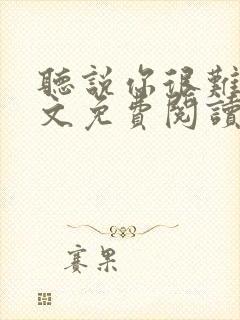 聽說你很難
文免費閱讀
賽果